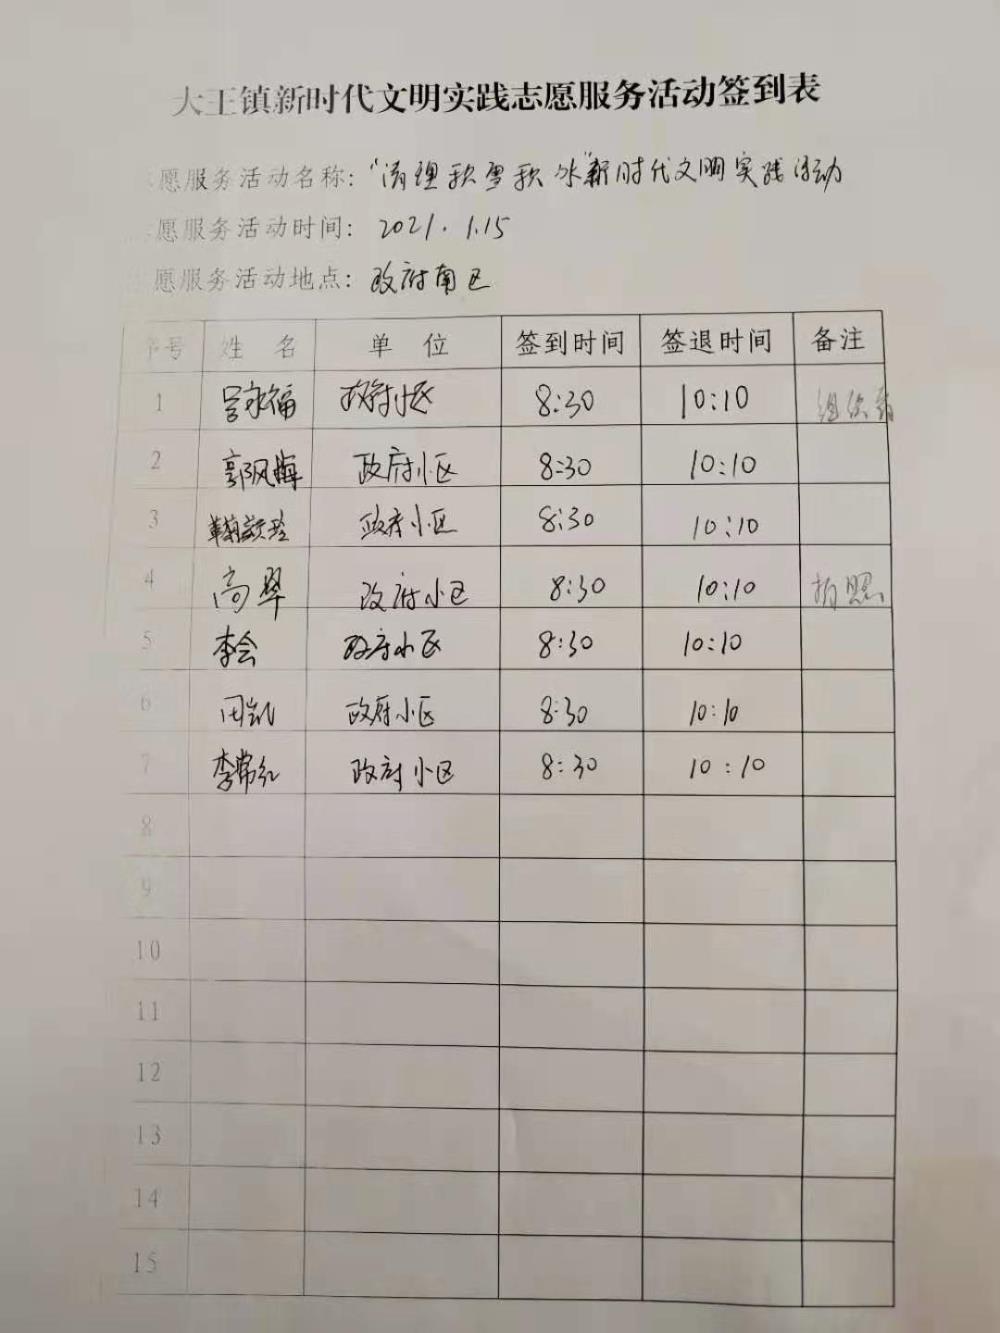 大王镇新时代文明实践志愿服务活动签到表
愿服务活动名称："清理积雪积冰"新时代文明实践活动
愿服务活动时间：2021.1.15
愿服务活动地点：政府南区
序号 姓 名 单 位 签到时间 签退时间 备注
1 吕永福 政府小区 8:30 10:10 组织者
2 郭凤梅 政府小区 8:30 10:10
3 政府小区 8:30 10:10
4 高翠 政府小区 8:30 10:10 拍照
5 李会 政府小区 8:30 10:10
6 田凯 政府小区 8:30 10:10
7 李常红 政府小区 8:30 10:10
8
9
10
11
12
13
14
15